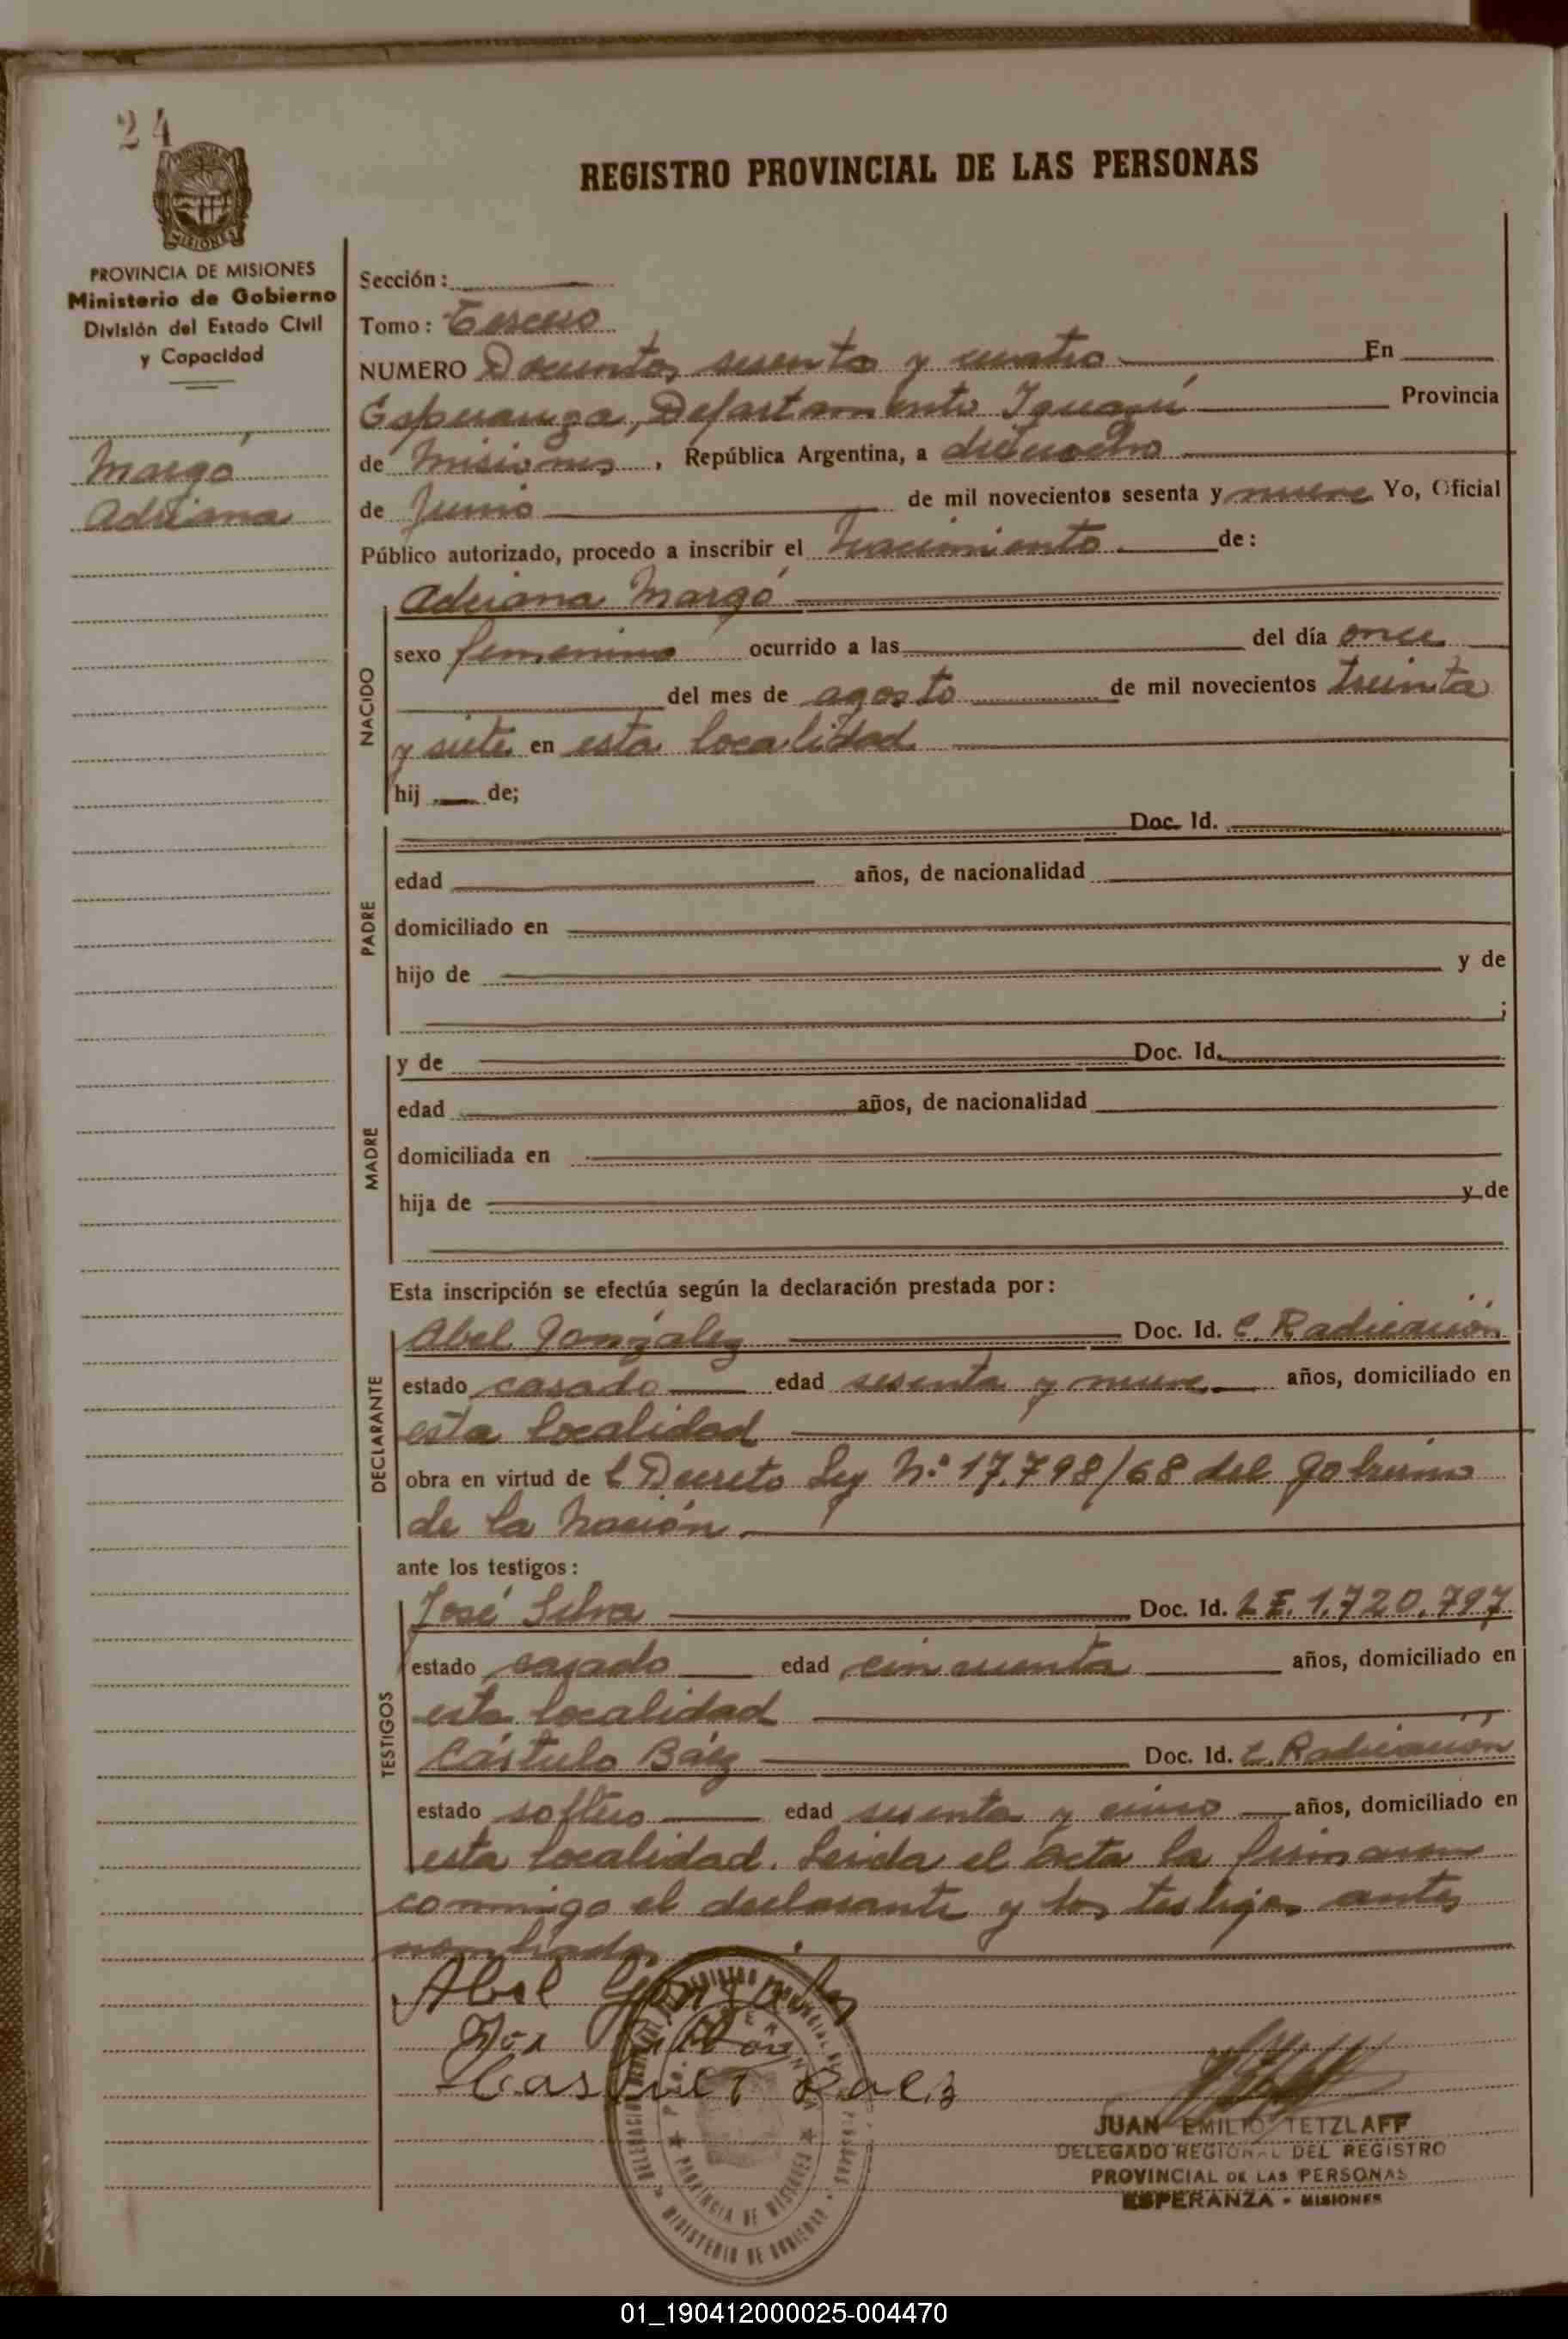 24
PROVINCIA DE MISIONES
Ministerio de Gobierno
División del Estado Civil
y Capacidad
Margó
Adriana
REGISTRO PROVINCIAL DE LAS PERSONAS
Sección:
Tomo: Tercero
NUMERO Docientos sesenta y cuatro En
Esperanza, Departamento Iguazú Provincia
de Misiones, República Argentina, a dieciocho
de Junio de mil novecientos sesenta y nueve Yo, Oficial
Público autorizado, procedo a inscribir el nacimiento de:
NACIDO
Adriana Margó
sexo femenino ocurrido a las del día once
del mes de agosto de mil novecientos treinta
y siete en esta localidad
hij de;
PADRE
Doc. Id.
edad años, de nacionalidad
domiciliado en
hijo de y de
;
MADRE
y de Doc. Id.
edad años, de nacionalidad
domiciliada en
hija de y de
Esta inscripción se efectúa según la declaración prestada por:
DECLARANTE
Abel González Doc. Id. C. Radicación
estado casado edad sesenta y nueve años, domiciliado en
esta localidad
obra en virtud de l Decreto Ley N° 17.798/68 del gobierno
de la Nación.
ante los testigos:
TESTIGOS
José Silva Doc. Id. L E. 1.720.797
estado casado edad cincuenta años, domiciliado en
esta localidad
Cástulo Báez Doc. Id. C. Radicación
estado soltero edad sesenta y cinco años, domiciliado en
esta localidad. Leída el acta la firmaron
conmigo el declarante y los testigos antes
nombrados.
Abel González
Baez
PROVINCIA DE MISIONES
MINISTERIO DE GOBIERNO
JUAN EMILIO TETZLAFF
DELEGADO REGIONAL DEL REGISTRO
PROVINCIAL DE LAS PERSONAS
ESPERANZA - MISIONES
01_190412000025-004470